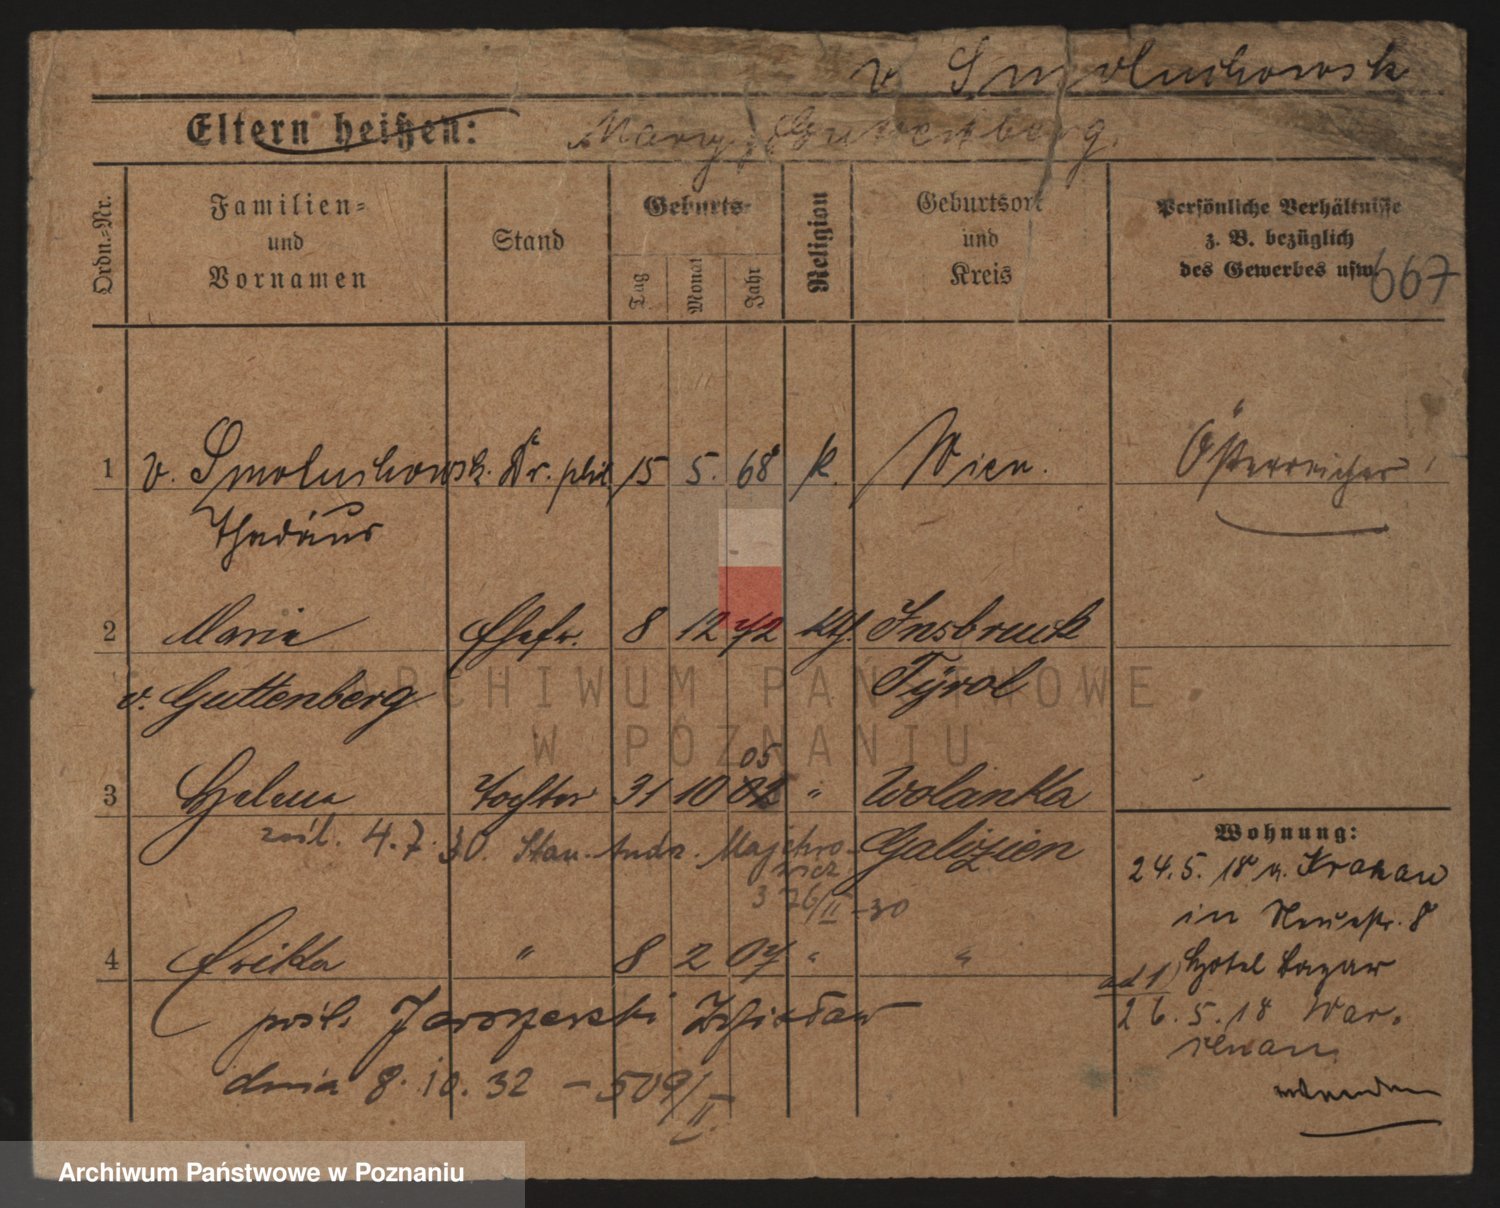 v. Smoluchowsk
Eltern heißen: Mary, Guttenberg.
Ordn.-Nr.
Familien-
und
Vornamen
Stand
Geburts-
Tag
Monat
Jahr
Religion
Geburtsort
und
Kreis
Persönliche Verhältnisse
z. B. bezüglich
des Gewerbes usw.
667
1 v. Smoluchowsk. Dr. phil 15 5. 68 k. Wien. Österreicher
Thadäus
2 Marie Ehefr. 8 12 72 kth. Insbruck
v. Guttenberg Tyrol
05
3 Helena Tochter 31 10 02 " Wolanka
Galizien
4.7.30. Stan. Andr.
3 76/II -30
4 Erika " 8 2 07 " "
pośl. Zdzisław
dnia 8.10.32 - 509/II.
Wohnung:
24.5.18 v. Krakau
in Neuestr. 8
Hotel Bazar
ad 1)
26.5.18 War-
schau
ARCHIWUM PAŃSTWOWE
W POZNANIU
Archiwum Państwowe w Poznaniu